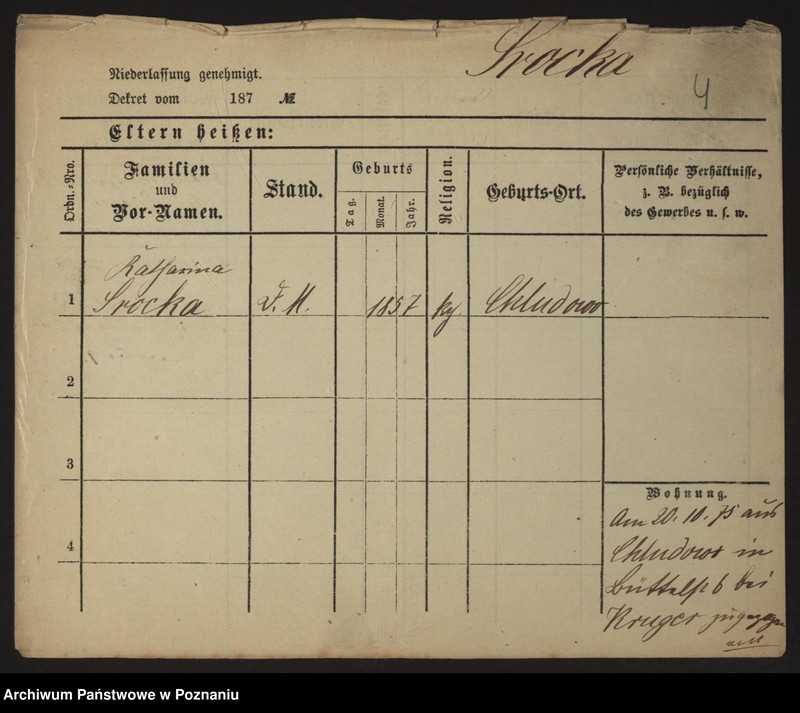 Srocka
4
Niederlassung genehmigt.
Dekret vom 187 №
Eltern heißen:
Ordn.-Nro.
Familien und Vor-Namen.
Stand.
Geburts
Tag.
Monat.
Jahr.
Religion.
Geburts-Ort.
Persönliche Verhältnisse,
z. B. bezüglich
des Gewerbes u. s. w.
Katharina
1 Srocka D. M. 1857 kg Chludowo
2
3
4
Wohnung.
Am 20. 10. 75 aus
Chludowo in
Büttelstr 6 bei
Kruger zugezogen
Archiwum Państwowe w Poznaniu